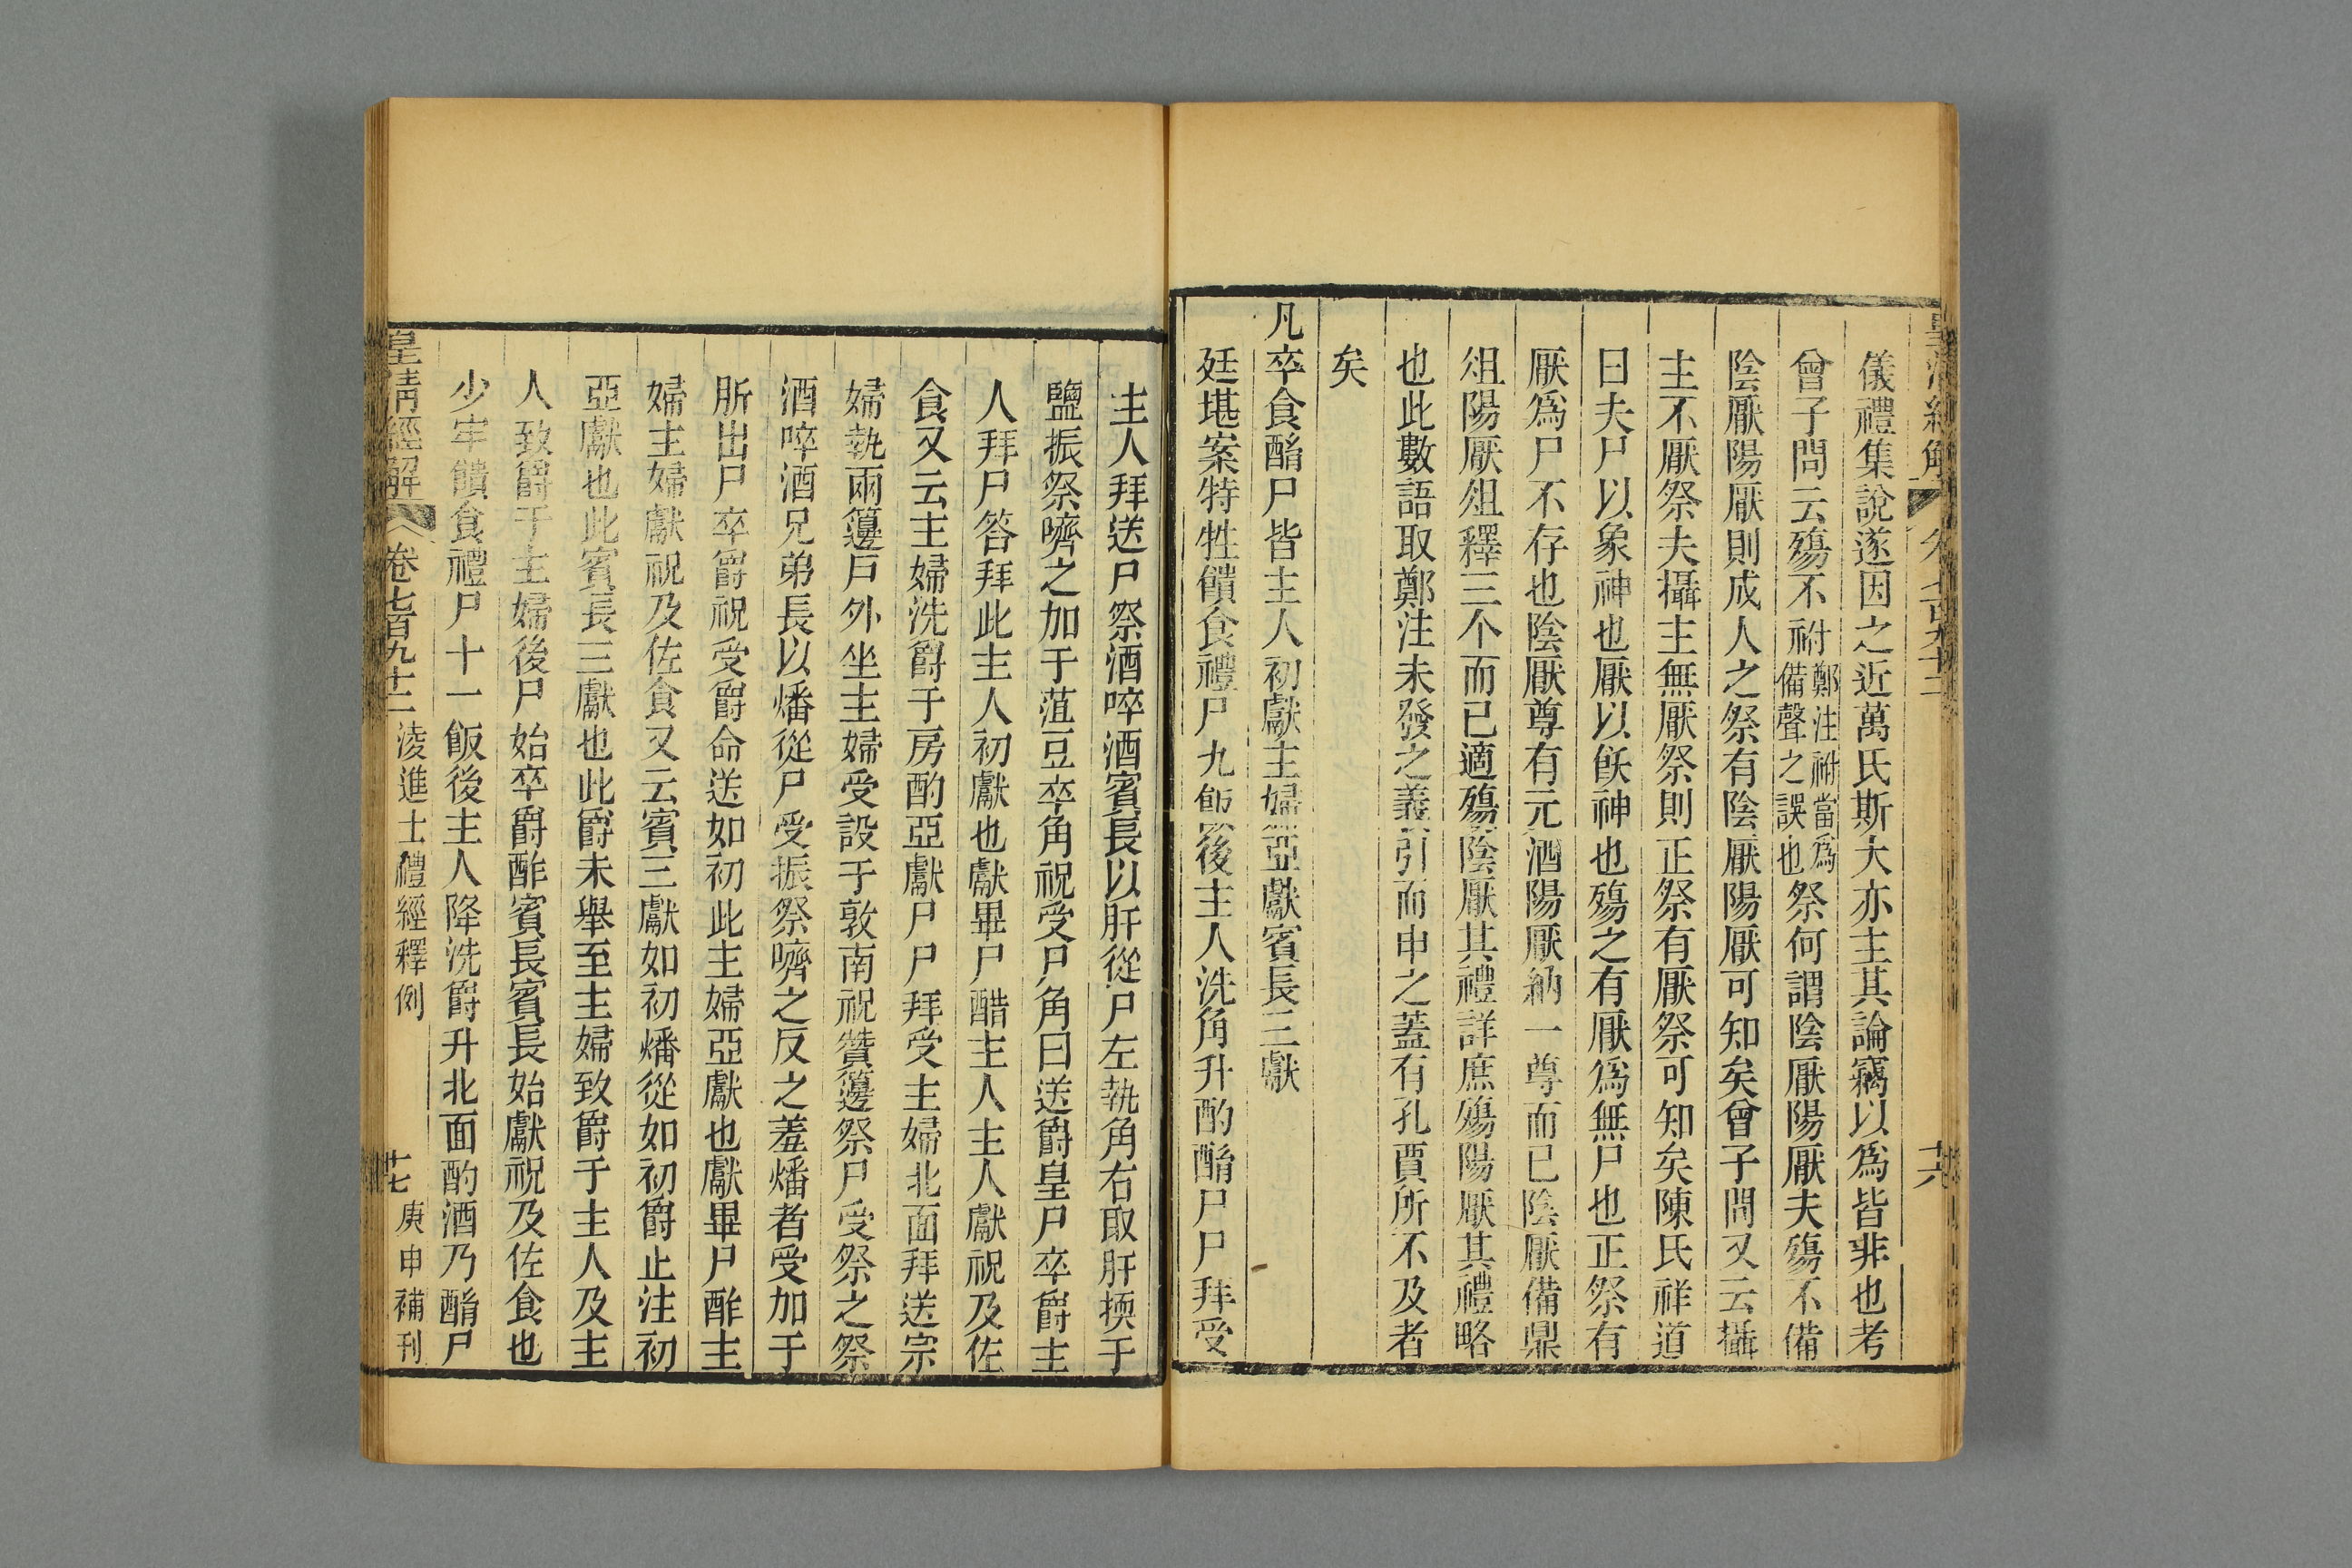 儀禮集說遂因之近萬氏斯大亦主其論竊以爲皆非也考
曾子問云殤不祔鄭注祔當爲備聲之誤也祭何謂陰厭陽厭夫殤不備
陰厭陽厭則成人之祭有陰厭陽厭可知矣曾子問又云攝
主不厭祭夫攝主無厭祭則正祭有厭祭可知矣陳氏祥道
曰夫尸以象神也厭以飫神也殤之有厭爲無尸也正祭有
厭爲尸不存也陰厭尊有元酒陽厭納一尊而已陰厭備鼎
俎陽厭俎釋三个而已適殤陰厭其禮詳庶殤陽厭其禮略
也此數語取鄭注未發之義引而申之蓋有孔賈所不及者
矣
凡卒食酳尸皆主人初獻主婦亞獻賓長三獻
廷堪案特牲饋食禮尸九飯後主人洗角升酌酳尸尸拜受
主人拜送尸祭酒啐酒賓長以肝從尸左執角右取肝擩于
鹽振祭嚌之加于菹豆卒角祝受尸角曰送爵皇尸卒爵主
人拜尸答拜此主人初獻也獻畢尸醋主人主人獻祝及佐
食又云主婦洗爵于房酌亞獻尸尸拜受主婦北面拜送宗
婦執兩籩戶外坐主婦受設于敦南祝贊籩祭尸受祭之祭
酒啐酒兄弟長以燔從尸受振祭嚌之反之羞燔者受加于
肵出尸卒爵祝受爵命送如初此主婦亞獻也獻畢尸酢主
婦主婦獻祝及佐食又云賓三獻如初燔從如初爵止注初
亞獻也此賓長三獻也此爵未舉至主婦致爵于主人及主
人致爵于主婦後尸始卒爵酢賓長賓長始獻祝及佐食也
少牢饋食禮尸十一飯後主人降洗爵升北面酌酒乃酳尸
皇清經解 卷七百九十二 淩進士禮經釋例 十七 庚申補刊